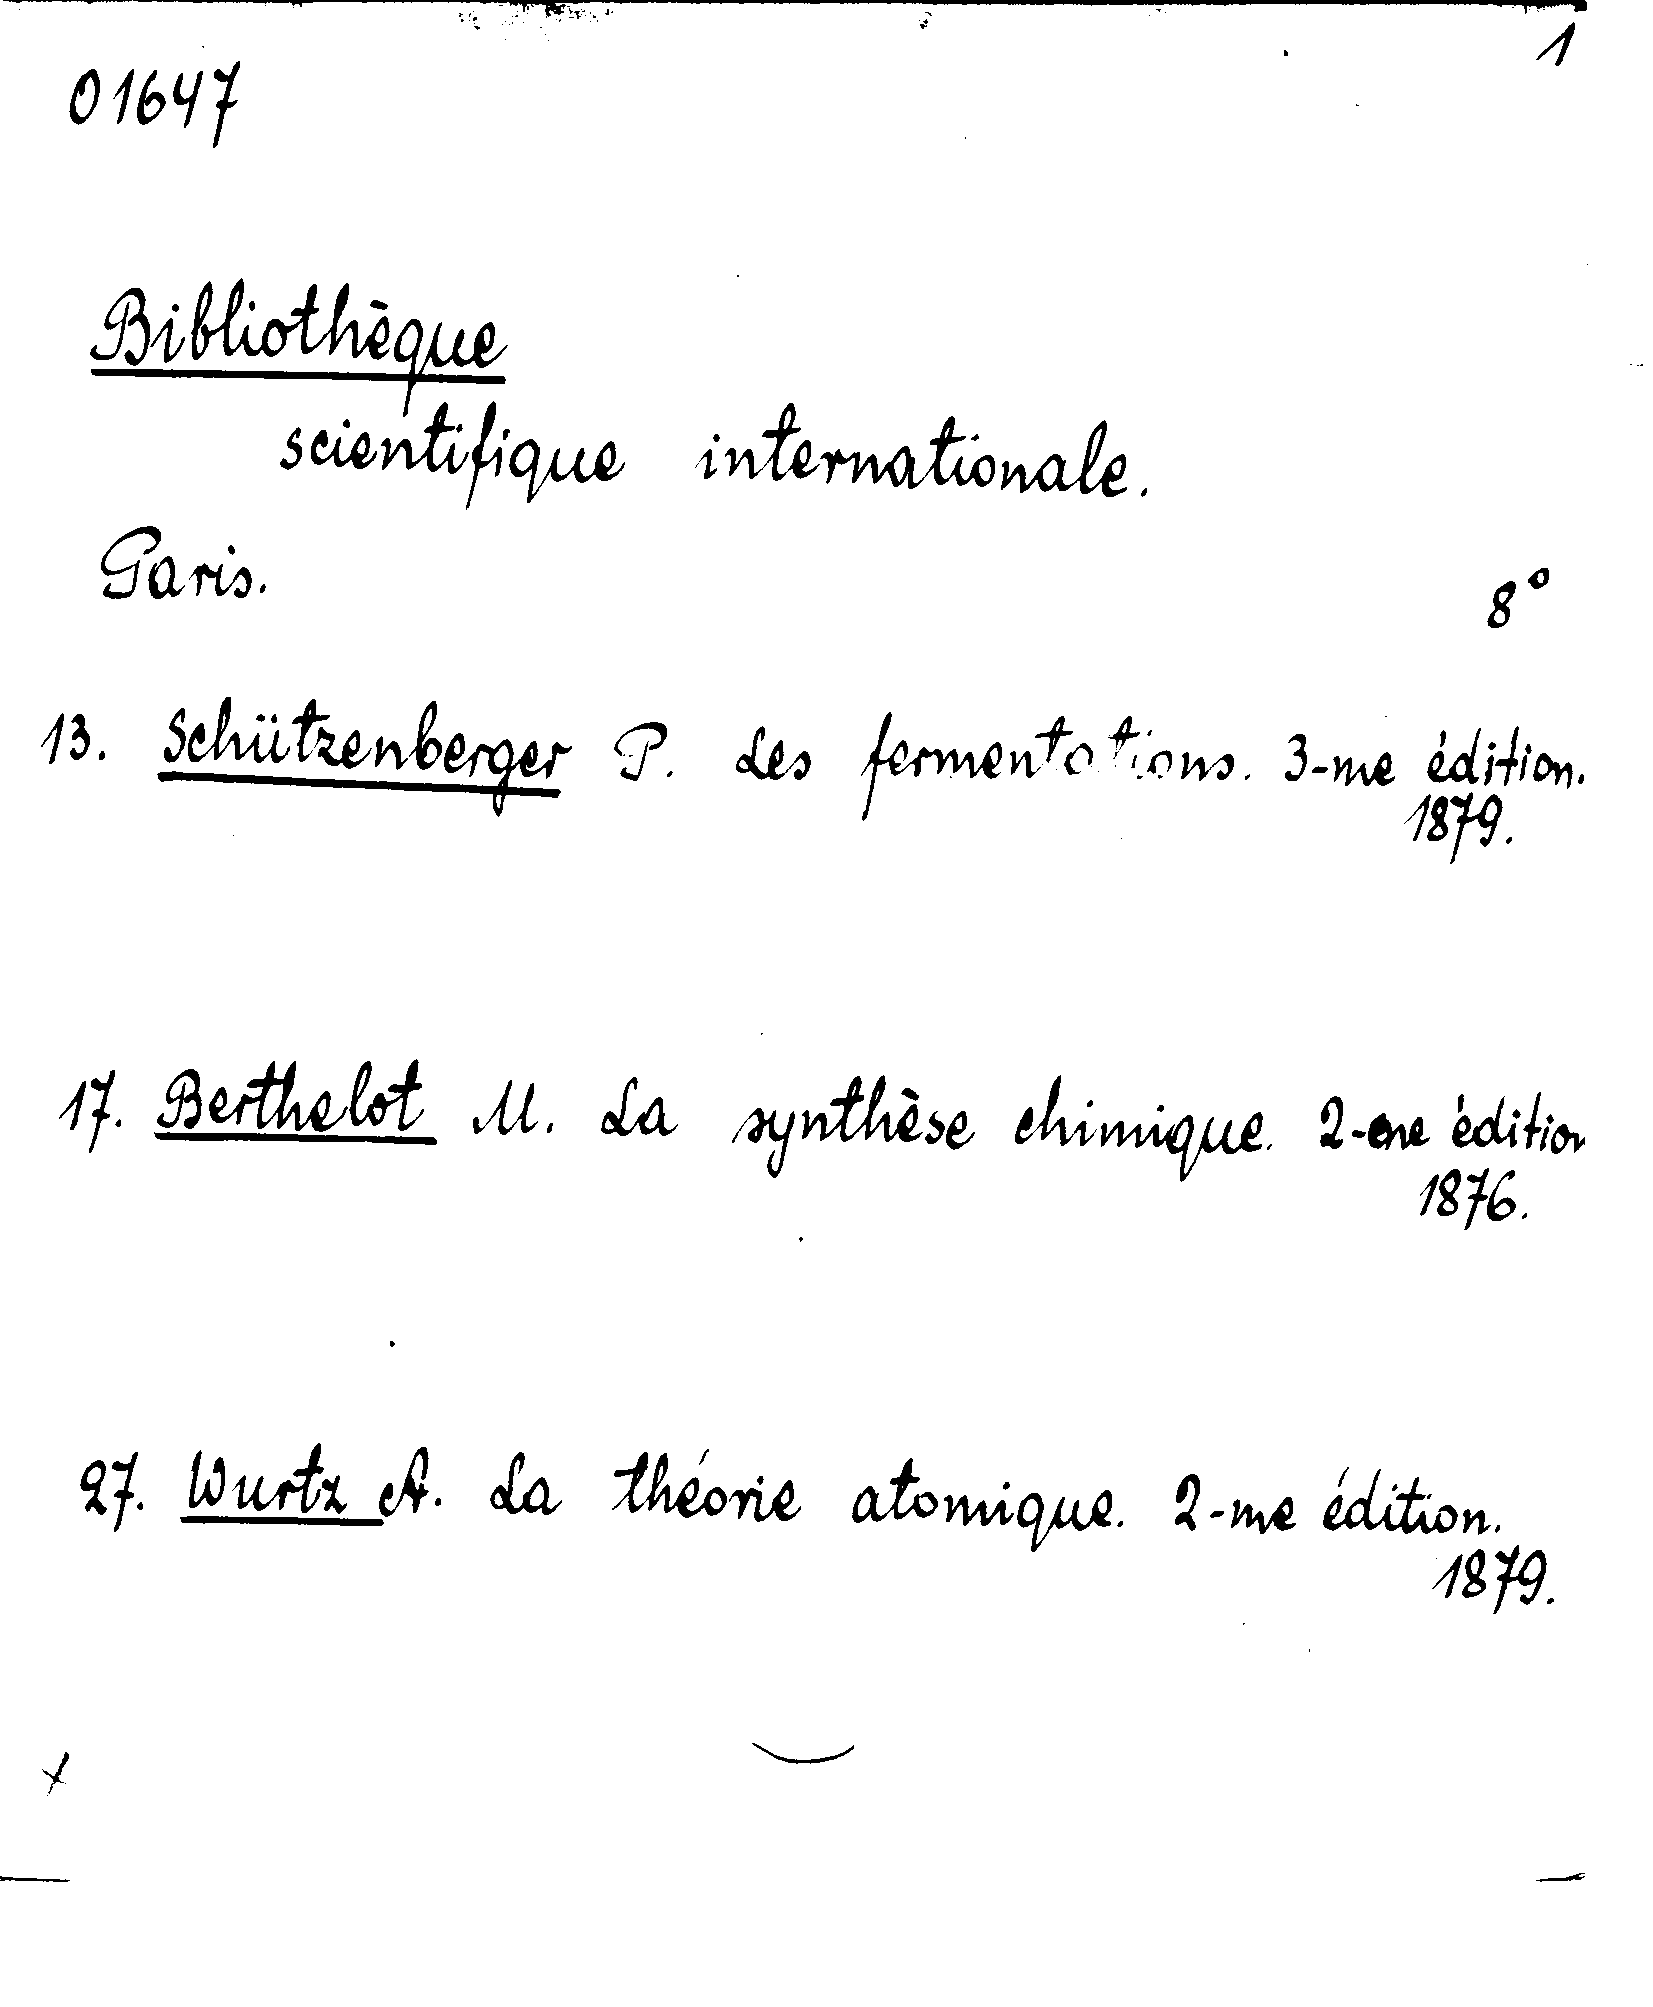 1
01647
Bibliothèque
scientifique internationale.
Paris.
8°
13. Schützenberger P. Les fermentations. 3-me édition.
1879.
17. Berthelot M. La synthèse chimique. 2-me édition
1876.
27. Wurtz A. La théorie atomique. 2-me édition.
1879.